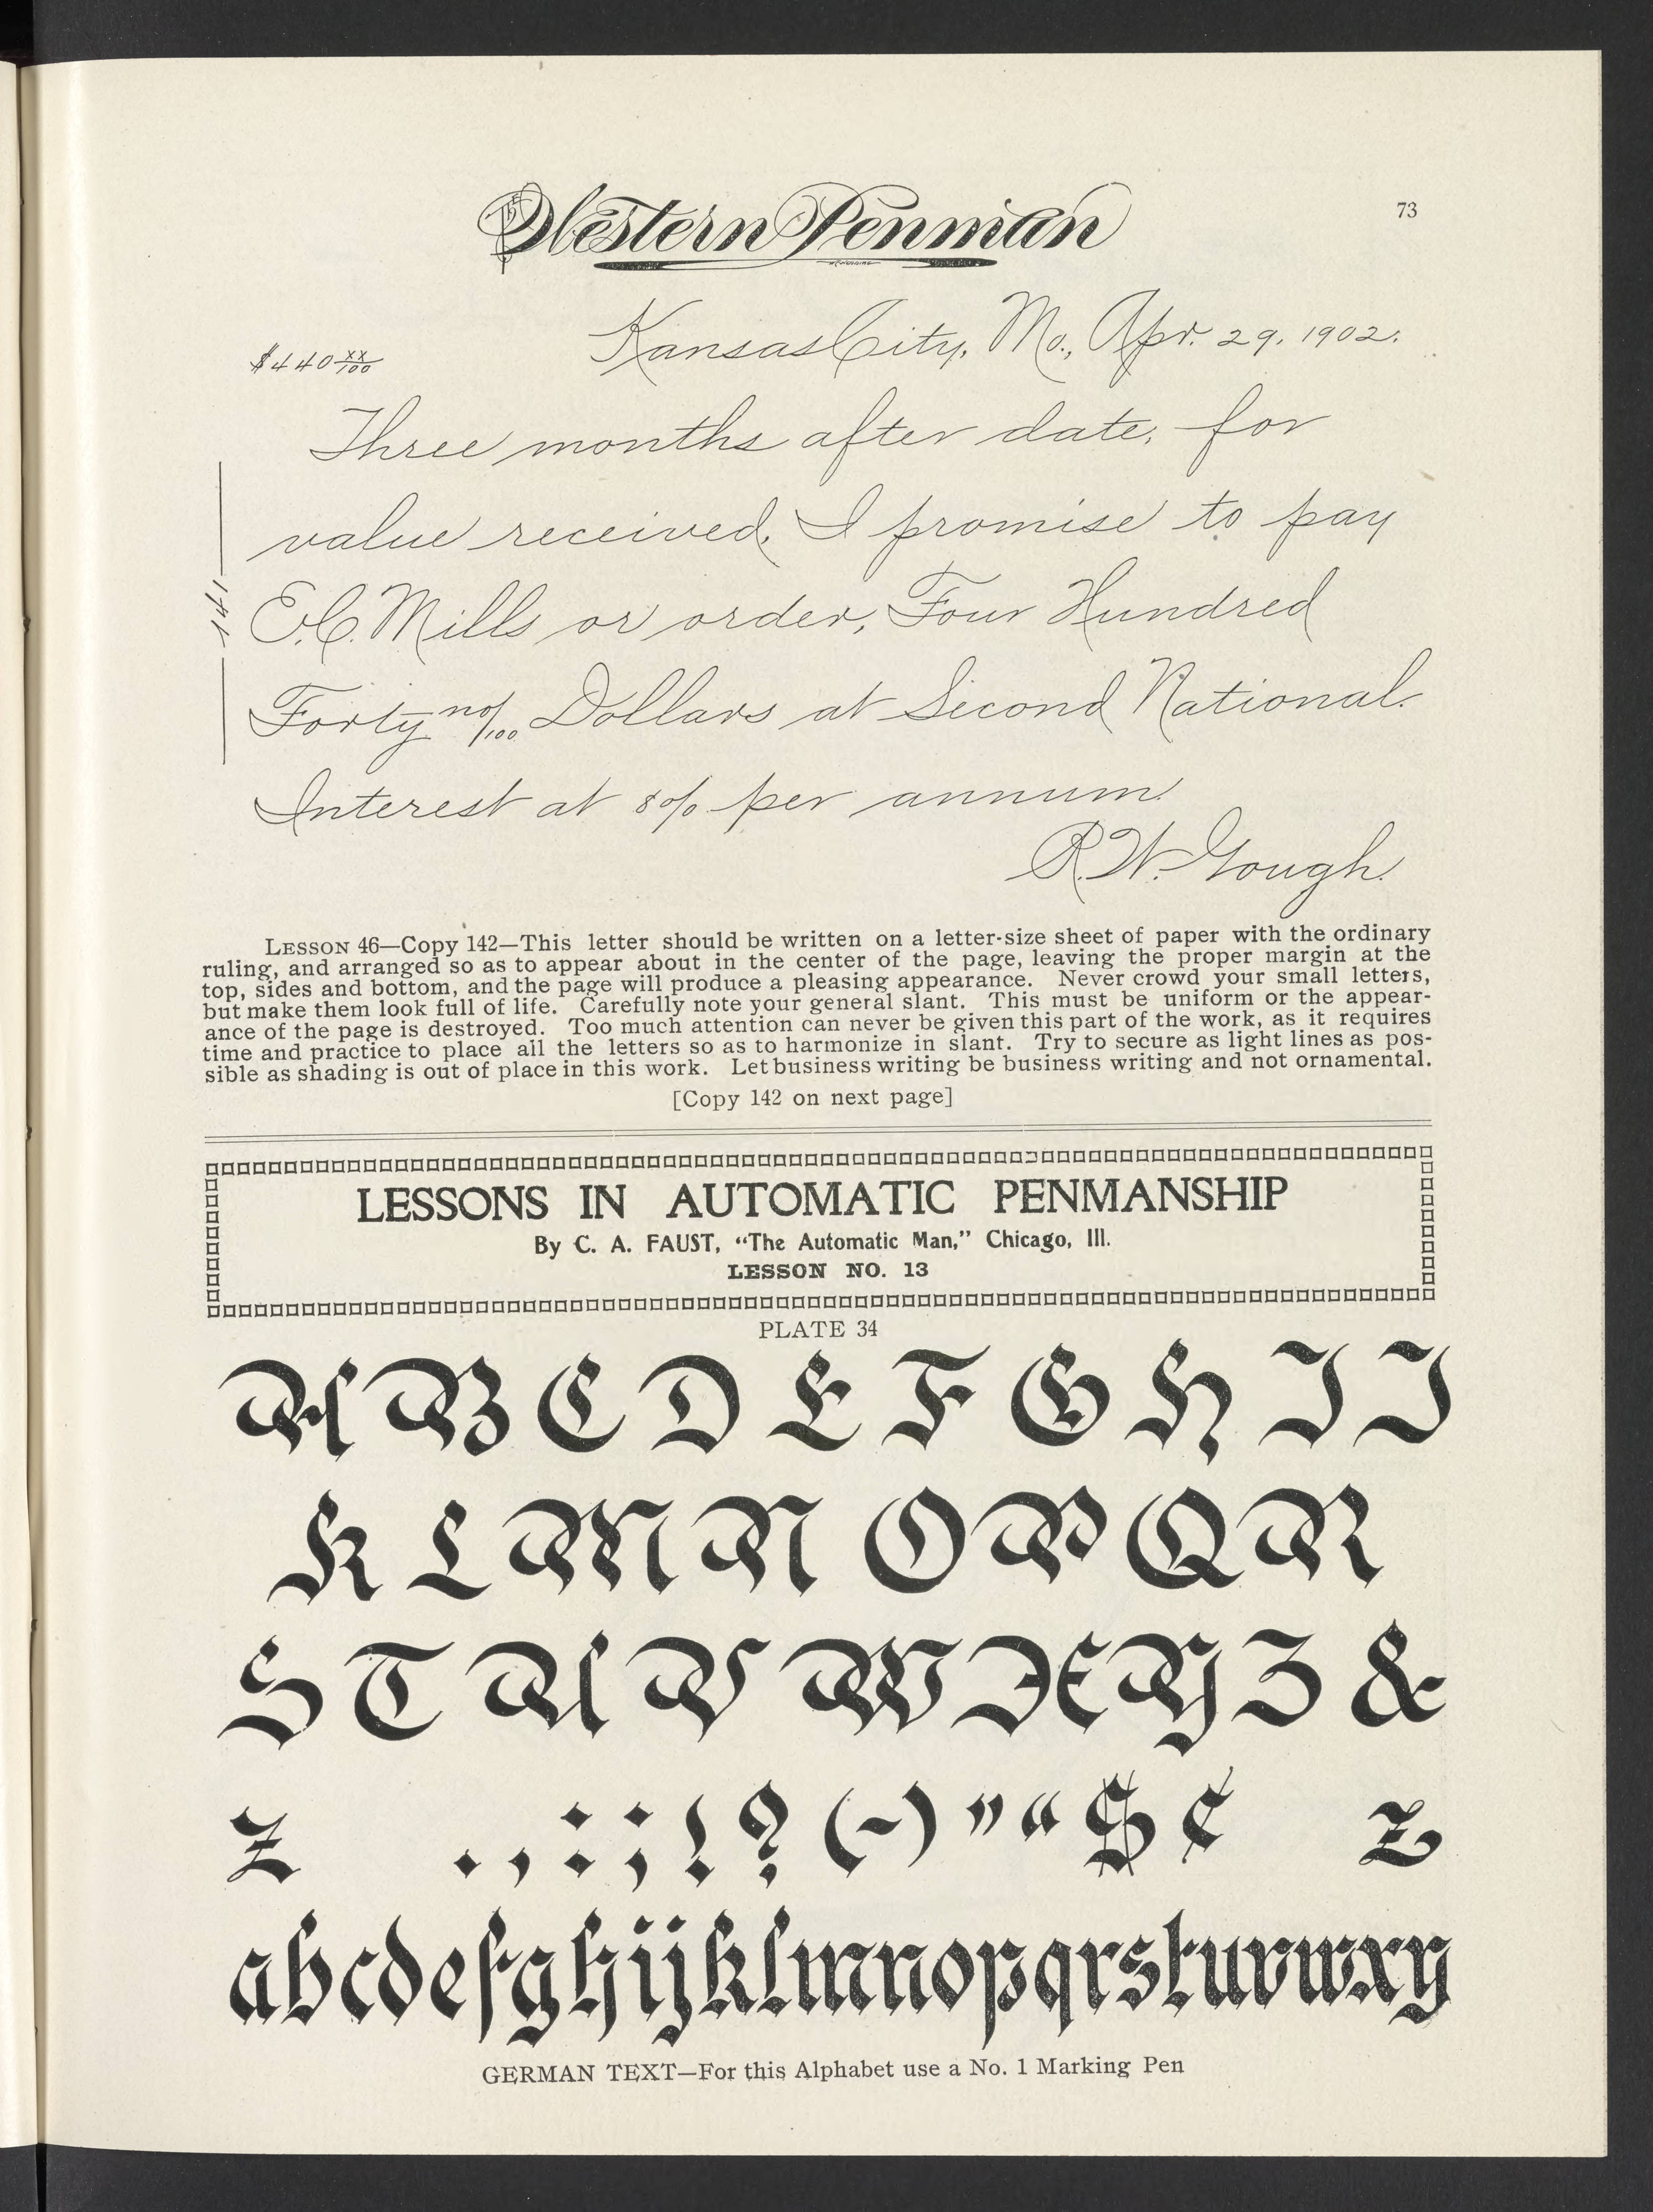 The Western Penman
73
$440 xx/100
Kansas City, Mo., Apr. 29, 1902.
Three months after date, for
value received, I promise to pay
E.C. Mills or order, Four Hundred
Forty no/100 Dollars at Second National.
Interest at 8% per annum.
R.W. Gough.
141
LESSON 46—Copy 142—This letter should be written on a letter-size sheet of paper with the ordinary
ruling, and arranged so as to appear about in the center of the page, leaving the proper margin at the
top, sides and bottom, and the page will produce a pleasing appearance. Never crowd your small letters,
but make them look full of life. Carefully note your general slant. This must be uniform or the appear-
ance of the page is destroyed. Too much attention can never be given this part of the work, as it requires
time and practice to place all the letters so as to harmonize in slant. Try to secure as light lines as pos-
sible as shading is out of place in this work. Let business writing be business writing and not ornamental.
[Copy 142 on next page]
LESSONS IN AUTOMATIC PENMANSHIP
By C. A. FAUST, “The Automatic Man,” Chicago, Ill.
LESSON NO. 13
PLATE 34
A B C D E F G H I J
K L M N O P Q R
S T U V W X Y Z &
z . , : ; ! ? (-) ” “ $ ¢ z
a b c d e f g h i j k l m n o p q r s t u v w x y
GERMAN TEXT—For this Alphabet use a No. 1 Marking Pen